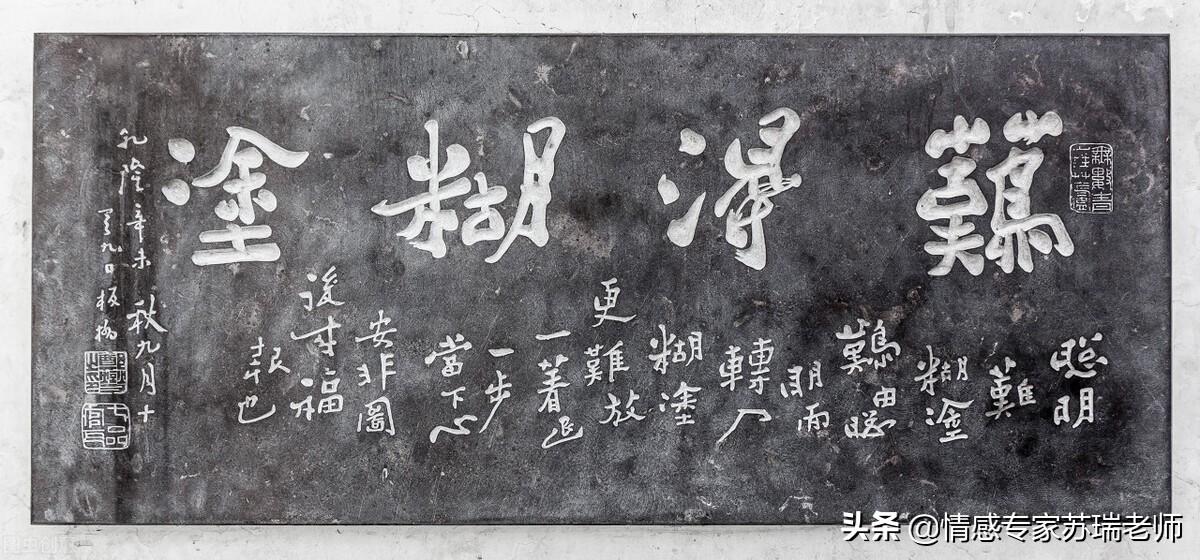 難得糊塗
無數青
山拜草廬
聰明
難
糊塗
難由聰
明而
轉入
糊塗
更難放
一著退
一步
當下心
安非圖
後來福
報也
乾隆辛未秋九月十
有九日板橋
鄭燮
之印
七品
官耳
头条 @情感专家苏瑞老师